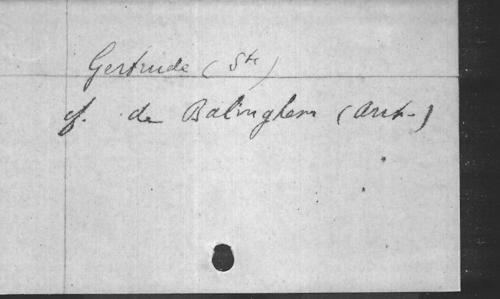 Gertrude (Ste)
cf. de Balinghem (Ant.)